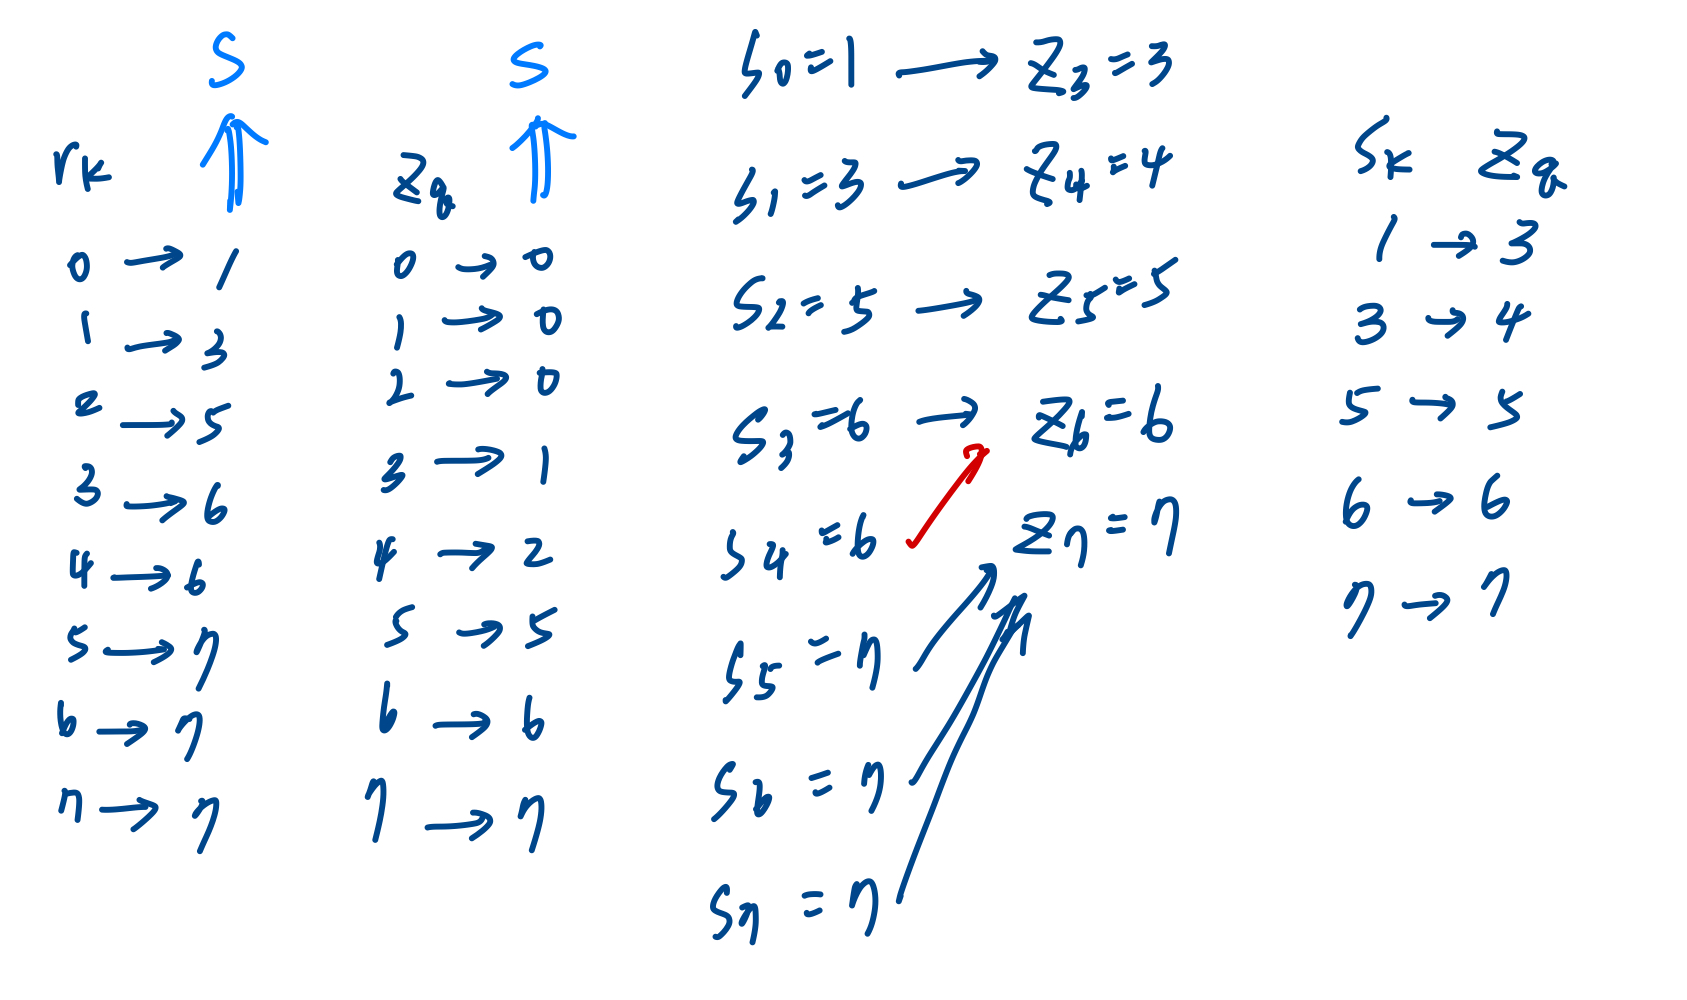 S
⇑
r_k
0 → 1
1 → 3
2 → 5
3 → 6
4 → 6
5 → 7
6 → 7
7 → 7
S
⇑
z_q
0 → 0
1 → 0
2 → 0
3 → 1
4 → 2
5 → 5
6 → 6
7 → 7
s_0 = 1 → z_3 = 3
s_1 = 3 → z_4 = 4
s_2 = 5 → z_5 = 5
s_3 = 6 → z_6 = 6
s_4 = 6
z_7 = 7
s_5 = 7
s_6 = 7
s_7 = 7
s_k z_q
1 → 3
3 → 4
5 → 5
6 → 6
7 → 7